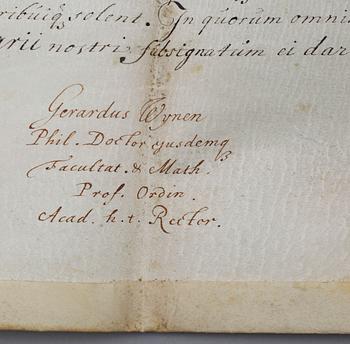 ribuiq; solent. In quorum omni
arii nostri subsignatum ei dar
Gerardus Wynen
Phil. Doctor ejusdemq;
Facultat. & Math.
Prof. Ordin.
Acad. h. t. Rector.